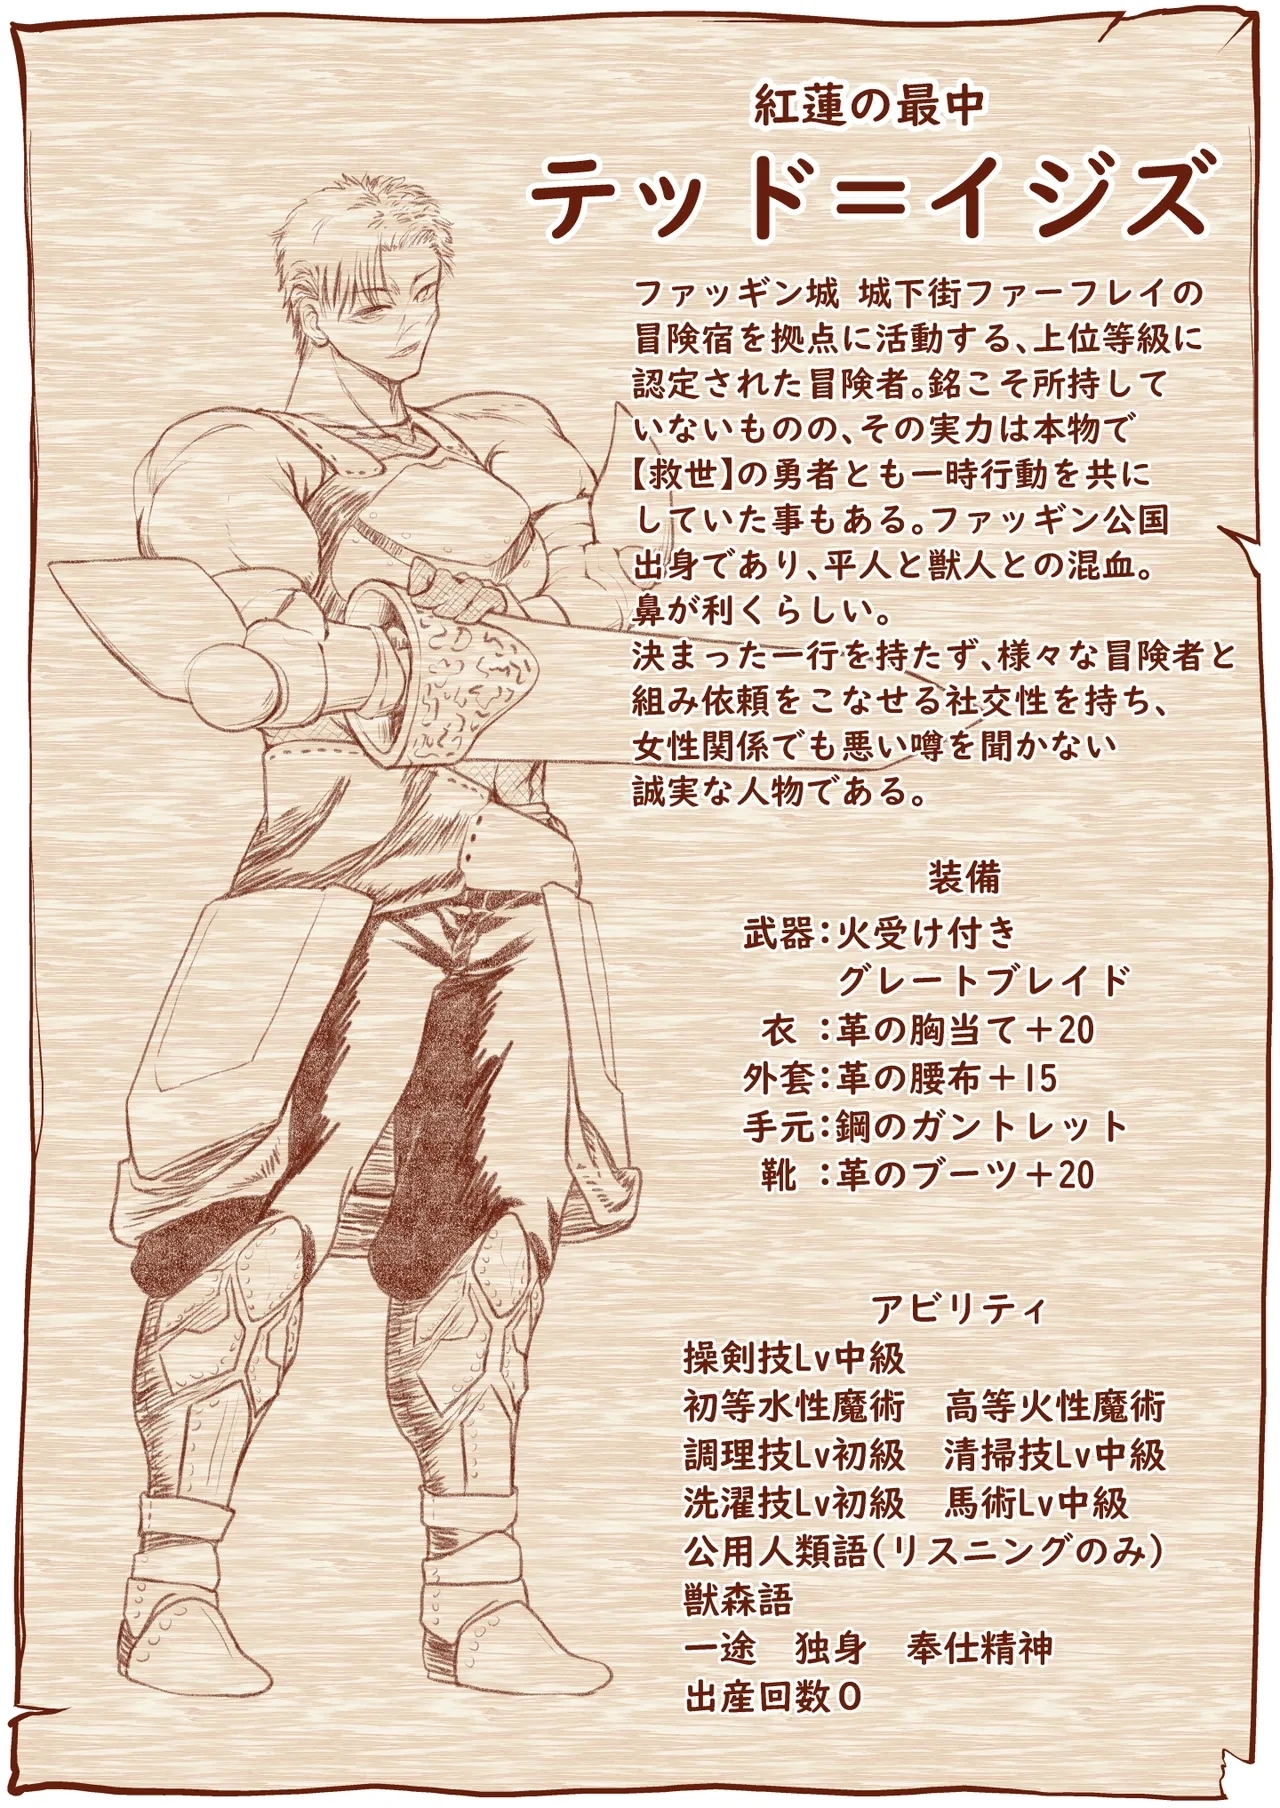 紅蓮の最中
テッド＝イジズ
ファッギン城 城下街ファーフレイの
冒険宿を拠点に活動する、上位等級に
認定された冒険者。銘こそ所持して
いないものの、その実力は本物で
【救世】の勇者とも一時行動を共に
していた事もある。ファッギン公国
出身であり、平人と獣人との混血。
鼻が利くらしい。
決まった一行を持たず、様々な冒険者と
組み依頼をこなせる社交性を持ち、
女性関係でも悪い噂を聞かない
誠実な人物である。
装備
武器：火受け付き
グレートブレイド
衣 ：革の胸当て＋20
外套：革の腰布＋15
手元：鋼のガントレット
靴 ：革のブーツ＋20
アビリティ
操剣技Lv中級
初等水性魔術　高等火性魔術
調理技Lv初級　清掃技Lv中級
洗濯技Lv初級　馬術Lv中級
公用人類語（リスニングのみ）
獣森語
一途　独身　奉仕精神
出産回数０